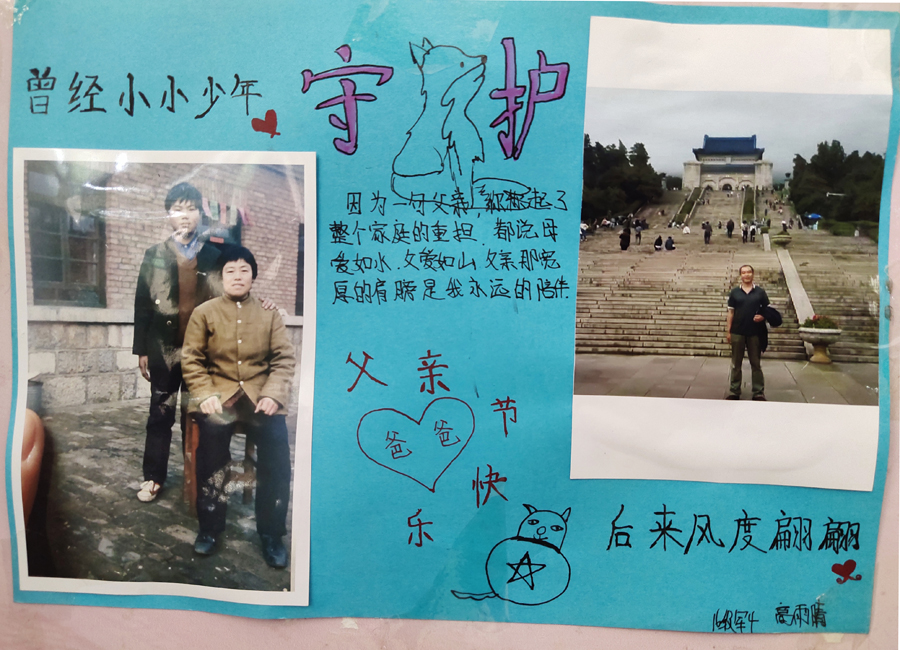 曾经小小少年
守护
因为一句父亲,你撑起了
整个家庭的重担.都说母
爱如水.父爱如山.父亲那宽
厚的肩膀是我永远的陪伴.
父亲
节
快
乐
爸爸
后来风度翩翩
高雨晴